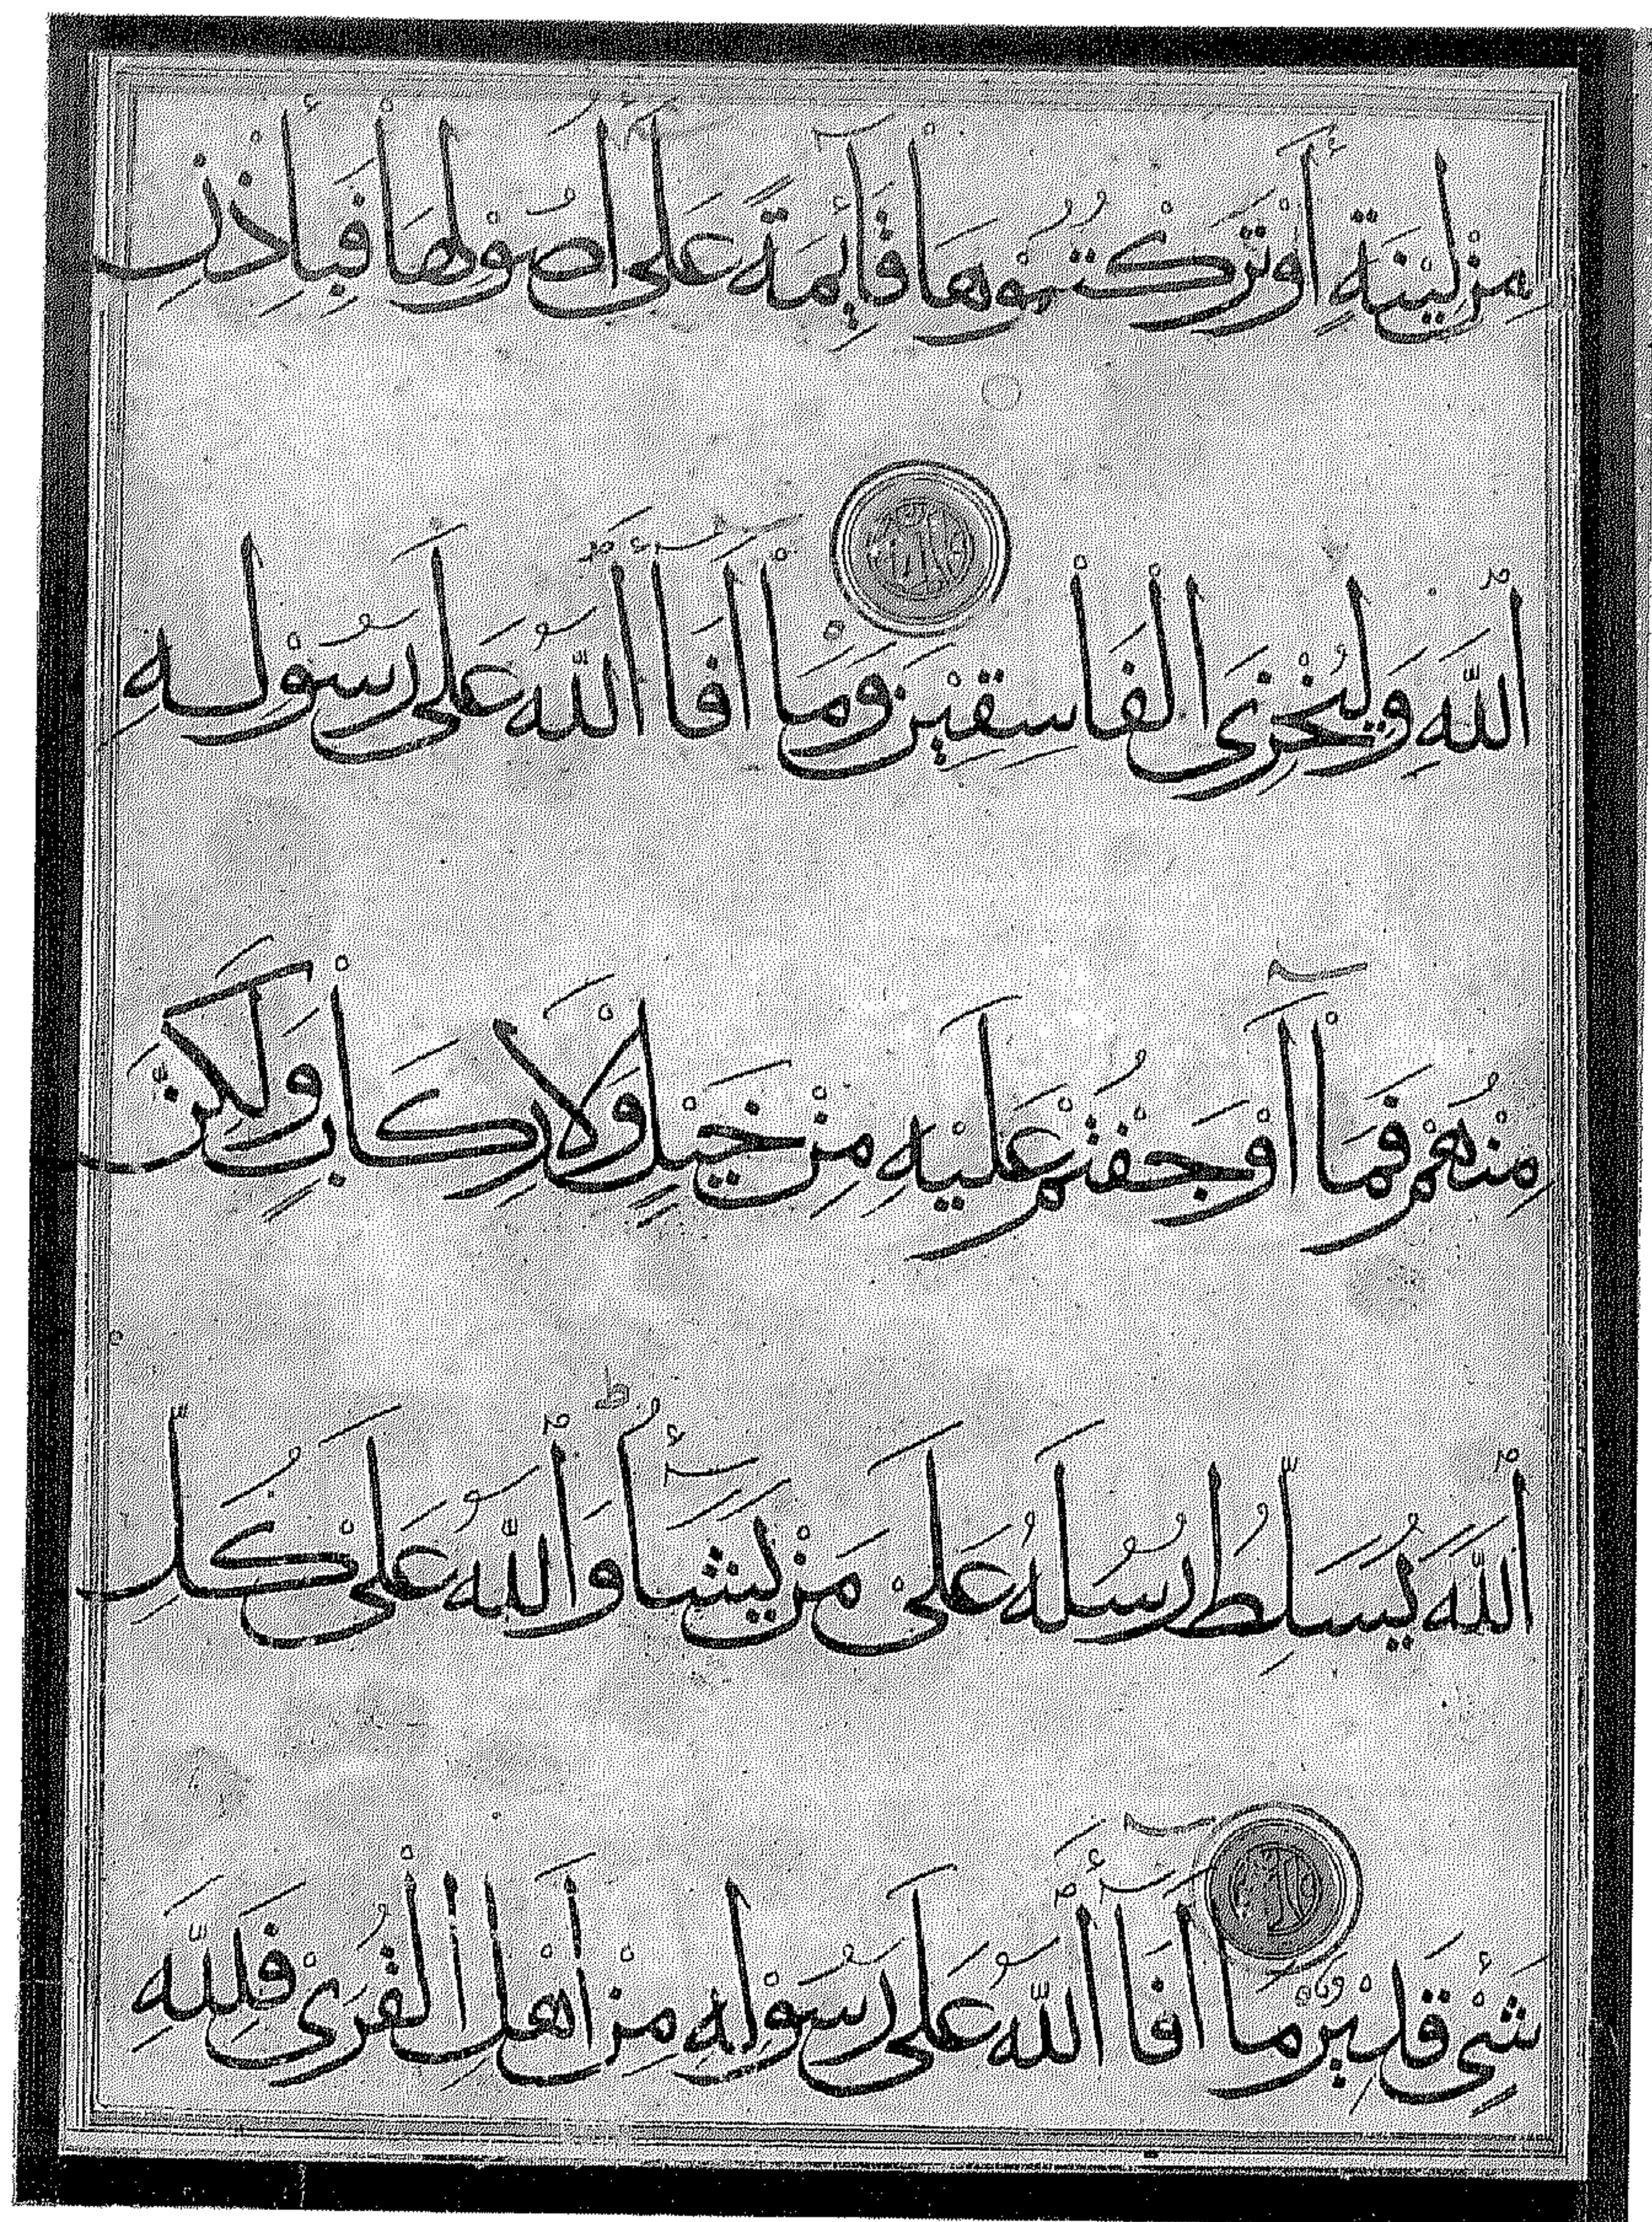 مِنْ لِينَةٍ أَوْ تَرَكْتُمُوهَا قَائِمَةً عَلَىٰ أُصُولِهَا فَبِإِذْنِ
اللَّهِ وَلِيُخْزِيَ الْفَاسِقِينَ وَمَا أَفَاءَ اللَّهُ عَلَىٰ رَسُولِهِ
مِنْهُمْ فَمَا أَوْجَفْتُمْ عَلَيْهِ مِنْ خَيْلٍ وَلَا رِكَابٍ وَلَٰكِنَّ
اللَّهَ يُسَلِّطُ رُسُلَهُ عَلَىٰ مَنْ يَشَاءُ ط وَاللَّهُ عَلَىٰ كُلِّ
شَيْءٍ قَدِيرٌ مَا أَفَاءَ اللَّهُ عَلَىٰ رَسُولِهِ مِنْ أَهْلِ الْقُرَىٰ فَلِلَّهِ